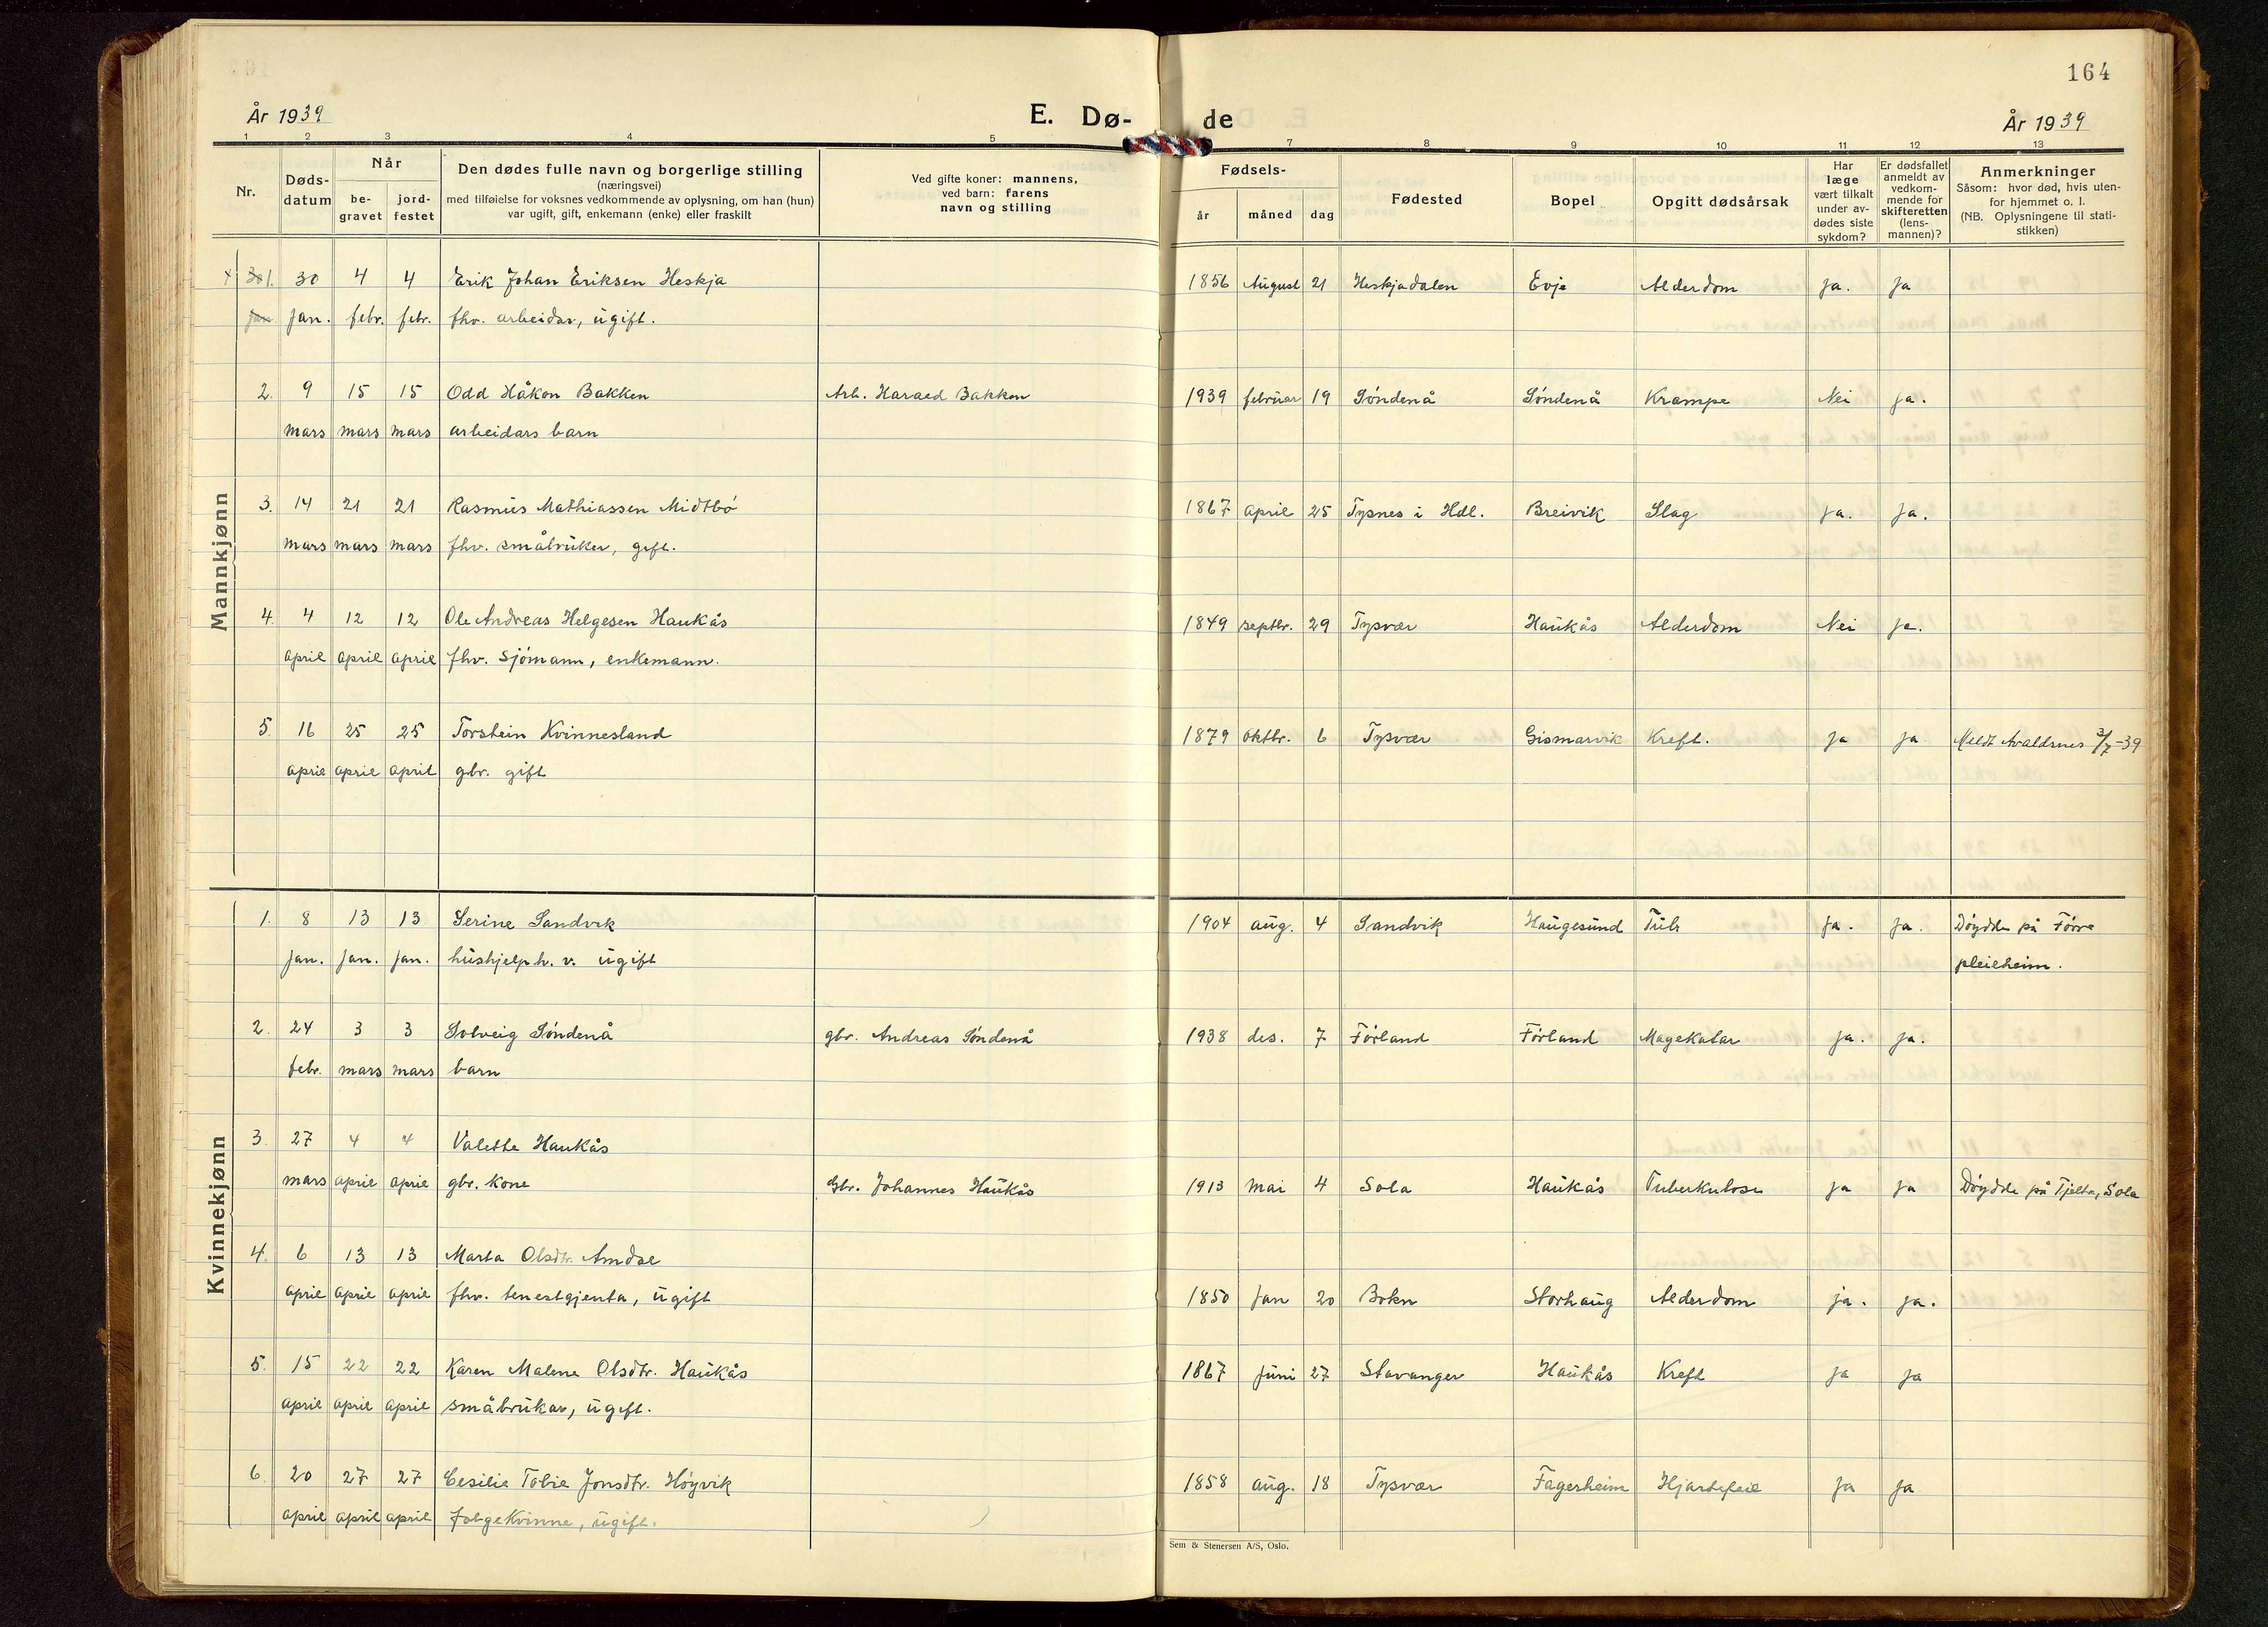 164
År 1939
E. Dø-
de
År 1939
1 2 3 4 5 7 8 9 10 11 12 13
Nr.
Døds-
datum
Når
be-
gravet
jord-
festet
Den dødes fulle navn og borgerlige stilling
(næringsvei)
med tilføielse for voksnes vedkommende av oplysning, om han (hun)
var ugift, gift, enkemann (enke) eller fraskilt
Ved gifte koner: mannens,
ved barn: farens
navn og stilling
Fødsels-
år måned dag
Fødested
Bopel
Opgitt dødsårsak
Har
læge
vært tilkalt
under av-
dødes siste
sykdom?
Er dødsfallet
anmeldt av
vedkom-
mende for
skifteretten
(lens-
mannen)?
Anmerkninger
Såsom: hvor død, hvis uten-
for hjemmet o. l.
(NB. Oplysningene til stati-
stikken)
Mannkjønn
1. 30 4 4 Erik Johan Eriksen Heskja 1856 August 21 Heskjadalen Evje Alderdom ja. ja
jan jan. febr. febr. fhv. arbeidar, ugift.
2. 9 15 15 Odd Håkon Bakken Arb. Harald Bakken 1939 februar 19 Søndenå Søndenå Krampe Nei ja.
mars mars mars arbeidars barn
3. 14 21 21 Rasmus Mathiassen Midtbø 1867 april 25 Tysnes i Hdl. Breivik Slag ja. ja.
mars mars mars fhv. småbruker, gift.
4. 4 12 12 Ole Andreas Helgesen Haukås 1849 septbr. 29 Tysvær Haukås Alderdom Nei ja.
april april april fhv. sjømann, enkemann.
5. 16 25 25 Torstein Kvinnesland 1879 oktbr. 6 Tysvær Gismarvik Kreft. ja ja Meldt Avaldsnes 3/7-39
april april april gbr. gift
Kvinnekjønn
1. 8 13 13 Serine Sandvik 1904 aug. 4 Sandvik Haugesund Tub. ja. ja. Døydde på Førre
jan. jan. jan. hushjelp h. v. ugift pleieheim.
2. 24 3 3 Solveig Søndenå gbr. Andreas Søndenå 1938 des. 7 Førland Førland Magekatar ja. ja.
febr. mars mars barn
3. 27 4 4 Valette Haukås
mars april april gbr. kone Gbr. Johannes Haukås 1913 mai 4 Sola Haukås Tuberkulose ja ja Døydde på Tjelta, Sola
4. 6 13 13 Marta Olsdtr. Amdal
april april april fhv. tenestgjenta, ugift 1850 jan 20 Bokn Storhaug Alderdom ja. ja.
5. 15 22 22 Karen Malene Olsdtr. Haukås 1867 juni 27 Stavanger Haukås Kreft ja ja
april april april småbrukar, ugift.
6. 20 27 27 Cesilie Tobie Jonsdtr. Høyvik 1858 aug. 18 Tysvær Fagerheim Hjartefeil ja ja
april april april folgekvinne, ugift.
Sem & Stenersen A/S, Oslo.